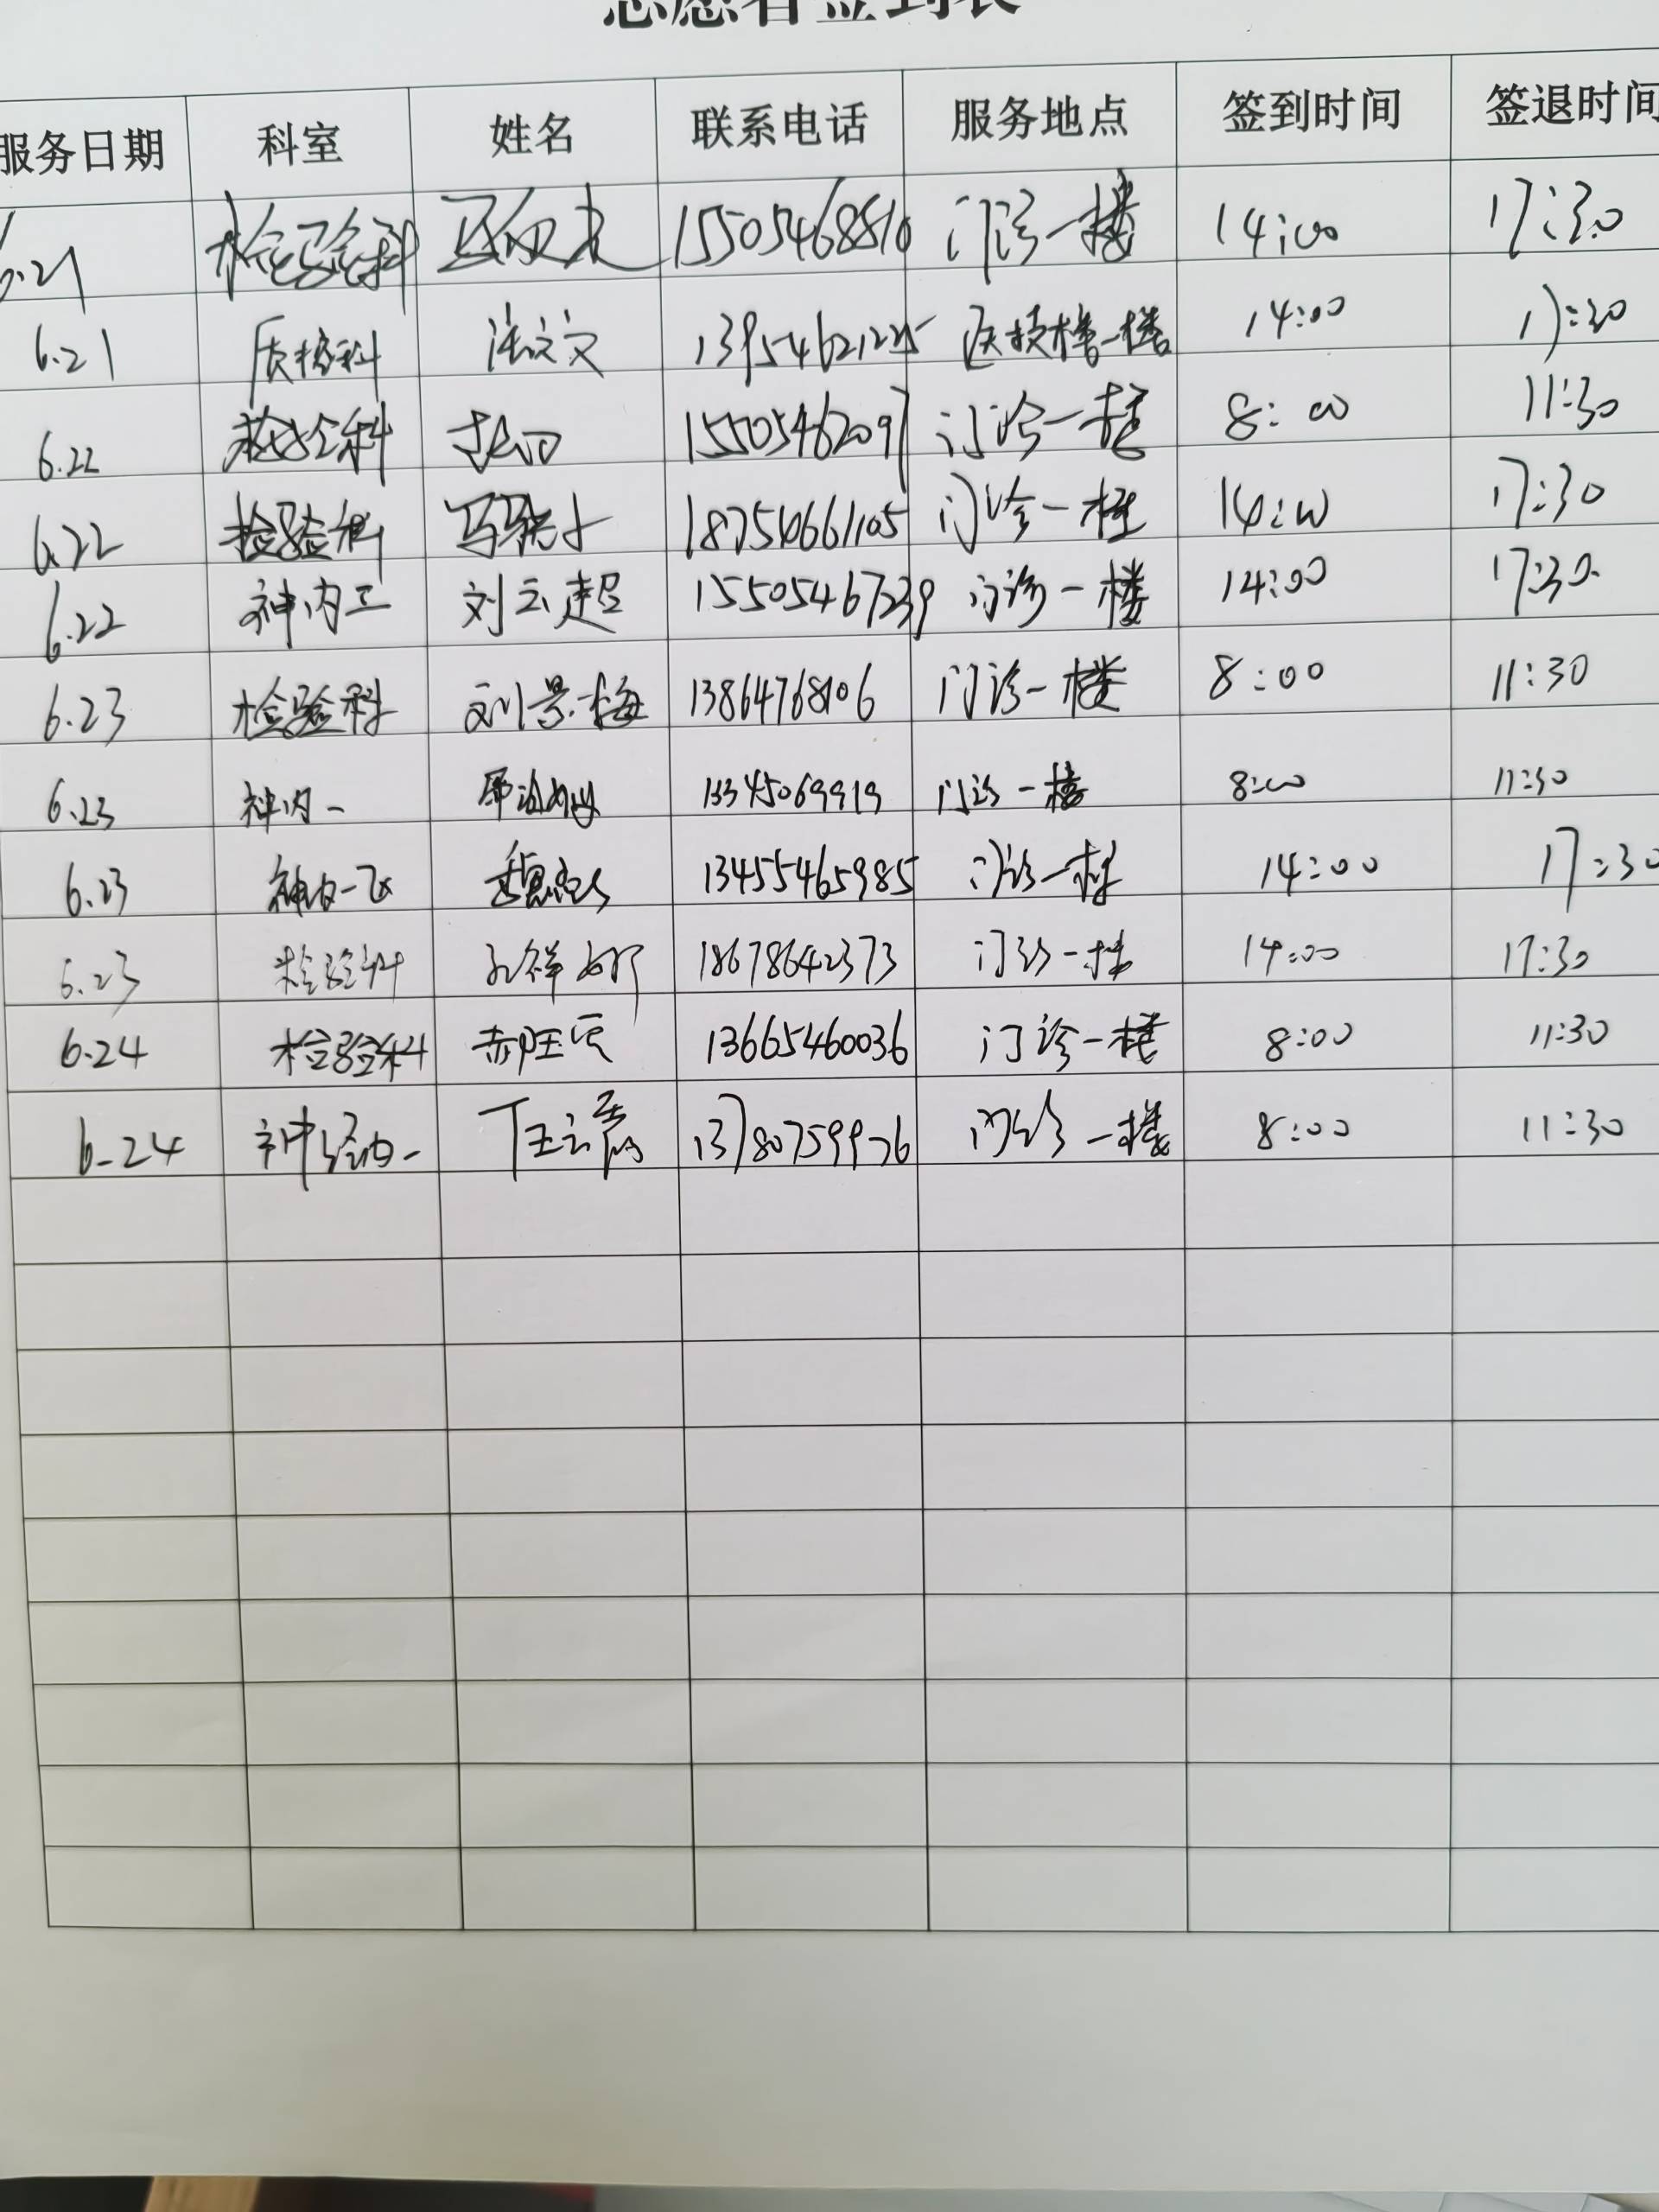 志愿者签到表
服务日期 科室 姓名 联系电话 服务地点 签到时间 签退时间
6.21 检验科 15505468810 门诊一楼 14:00 17:30
6.21 质控科 13954621225 医技楼一楼 14:00 17:30
6.22 检验科 15505462097 门诊一楼 8:00 11:30
6.22 检验科 18754666105 门诊一楼 14:00 17:30
6.22 神内二 刘云超 15505467239 门诊一楼 14:00 17:30
6.23 检验科 刘景梅 13864768106 门诊一楼 8:00 11:30
6.23 神内一 13345069919 门诊一楼 8:00 11:30
6.23 神内一 13455465985 门诊一楼 14:00 17:30
6.23 检验科 孔祥娜 18678642373 门诊一楼 14:00 17:30
6.24 检验科 13665460036 门诊一楼 8:00 11:30
6.24 神经内一 13780759976 门诊一楼 8:00 11:30